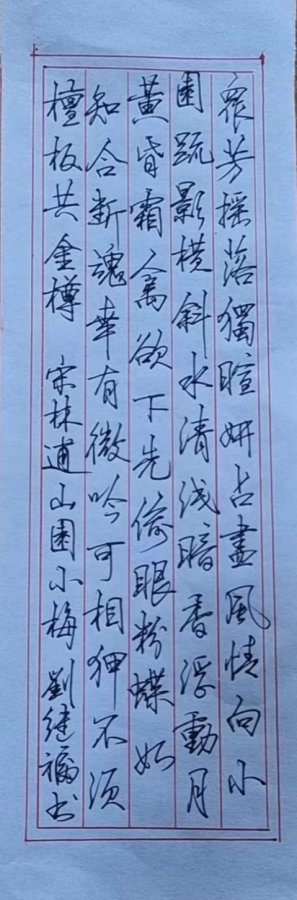 衆芳摇落獨暄妍占盡風情向小
園疏影橫斜水清浅暗香浮動月
黃昏霜禽欲下先偷眼粉蝶如
知合斷魂幸有微吟可相狎不須
檀板共金樽 宋林逋山園小梅 劉继福书